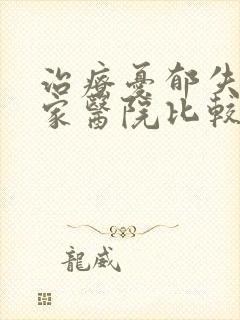 治療憂郁失
家醫院比較
龍威